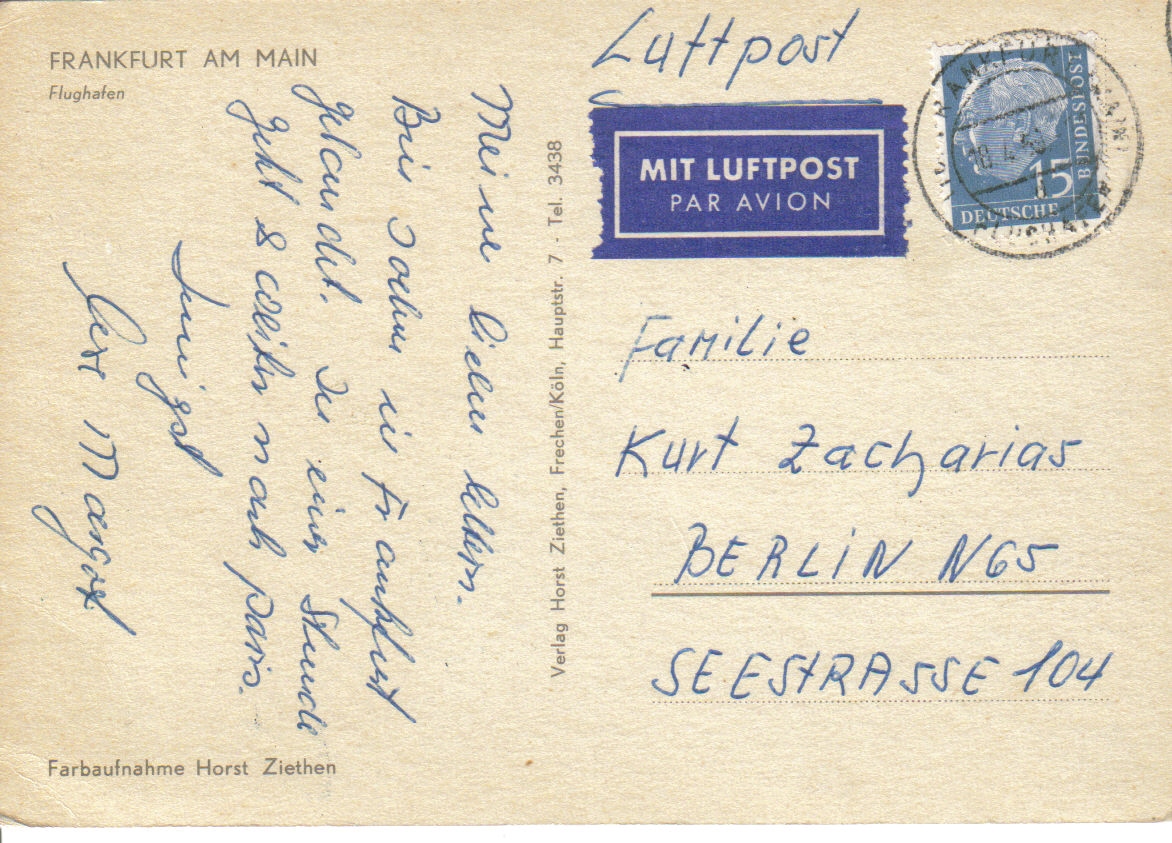 FRANKFURT AM MAIN
Flughafen
Meine lieben Eltern.
Bin schon in Frankfurt
gelandet. In einer Stunde
geht's weiter nach Paris.
Innigst
Eure Margot
Farbaufnahme Horst Ziethen
Verlag Horst Ziethen, Frechen/Köln, Hauptstr. 7 - Tel. 3438
Luftpost
MIT LUFTPOST
PAR AVION
15
DEUTSCHE
BUNDESPOST
FLUGHAFEN
Familie
Kurt Zacharias
BERLIN N65
SEESTRASSE 104